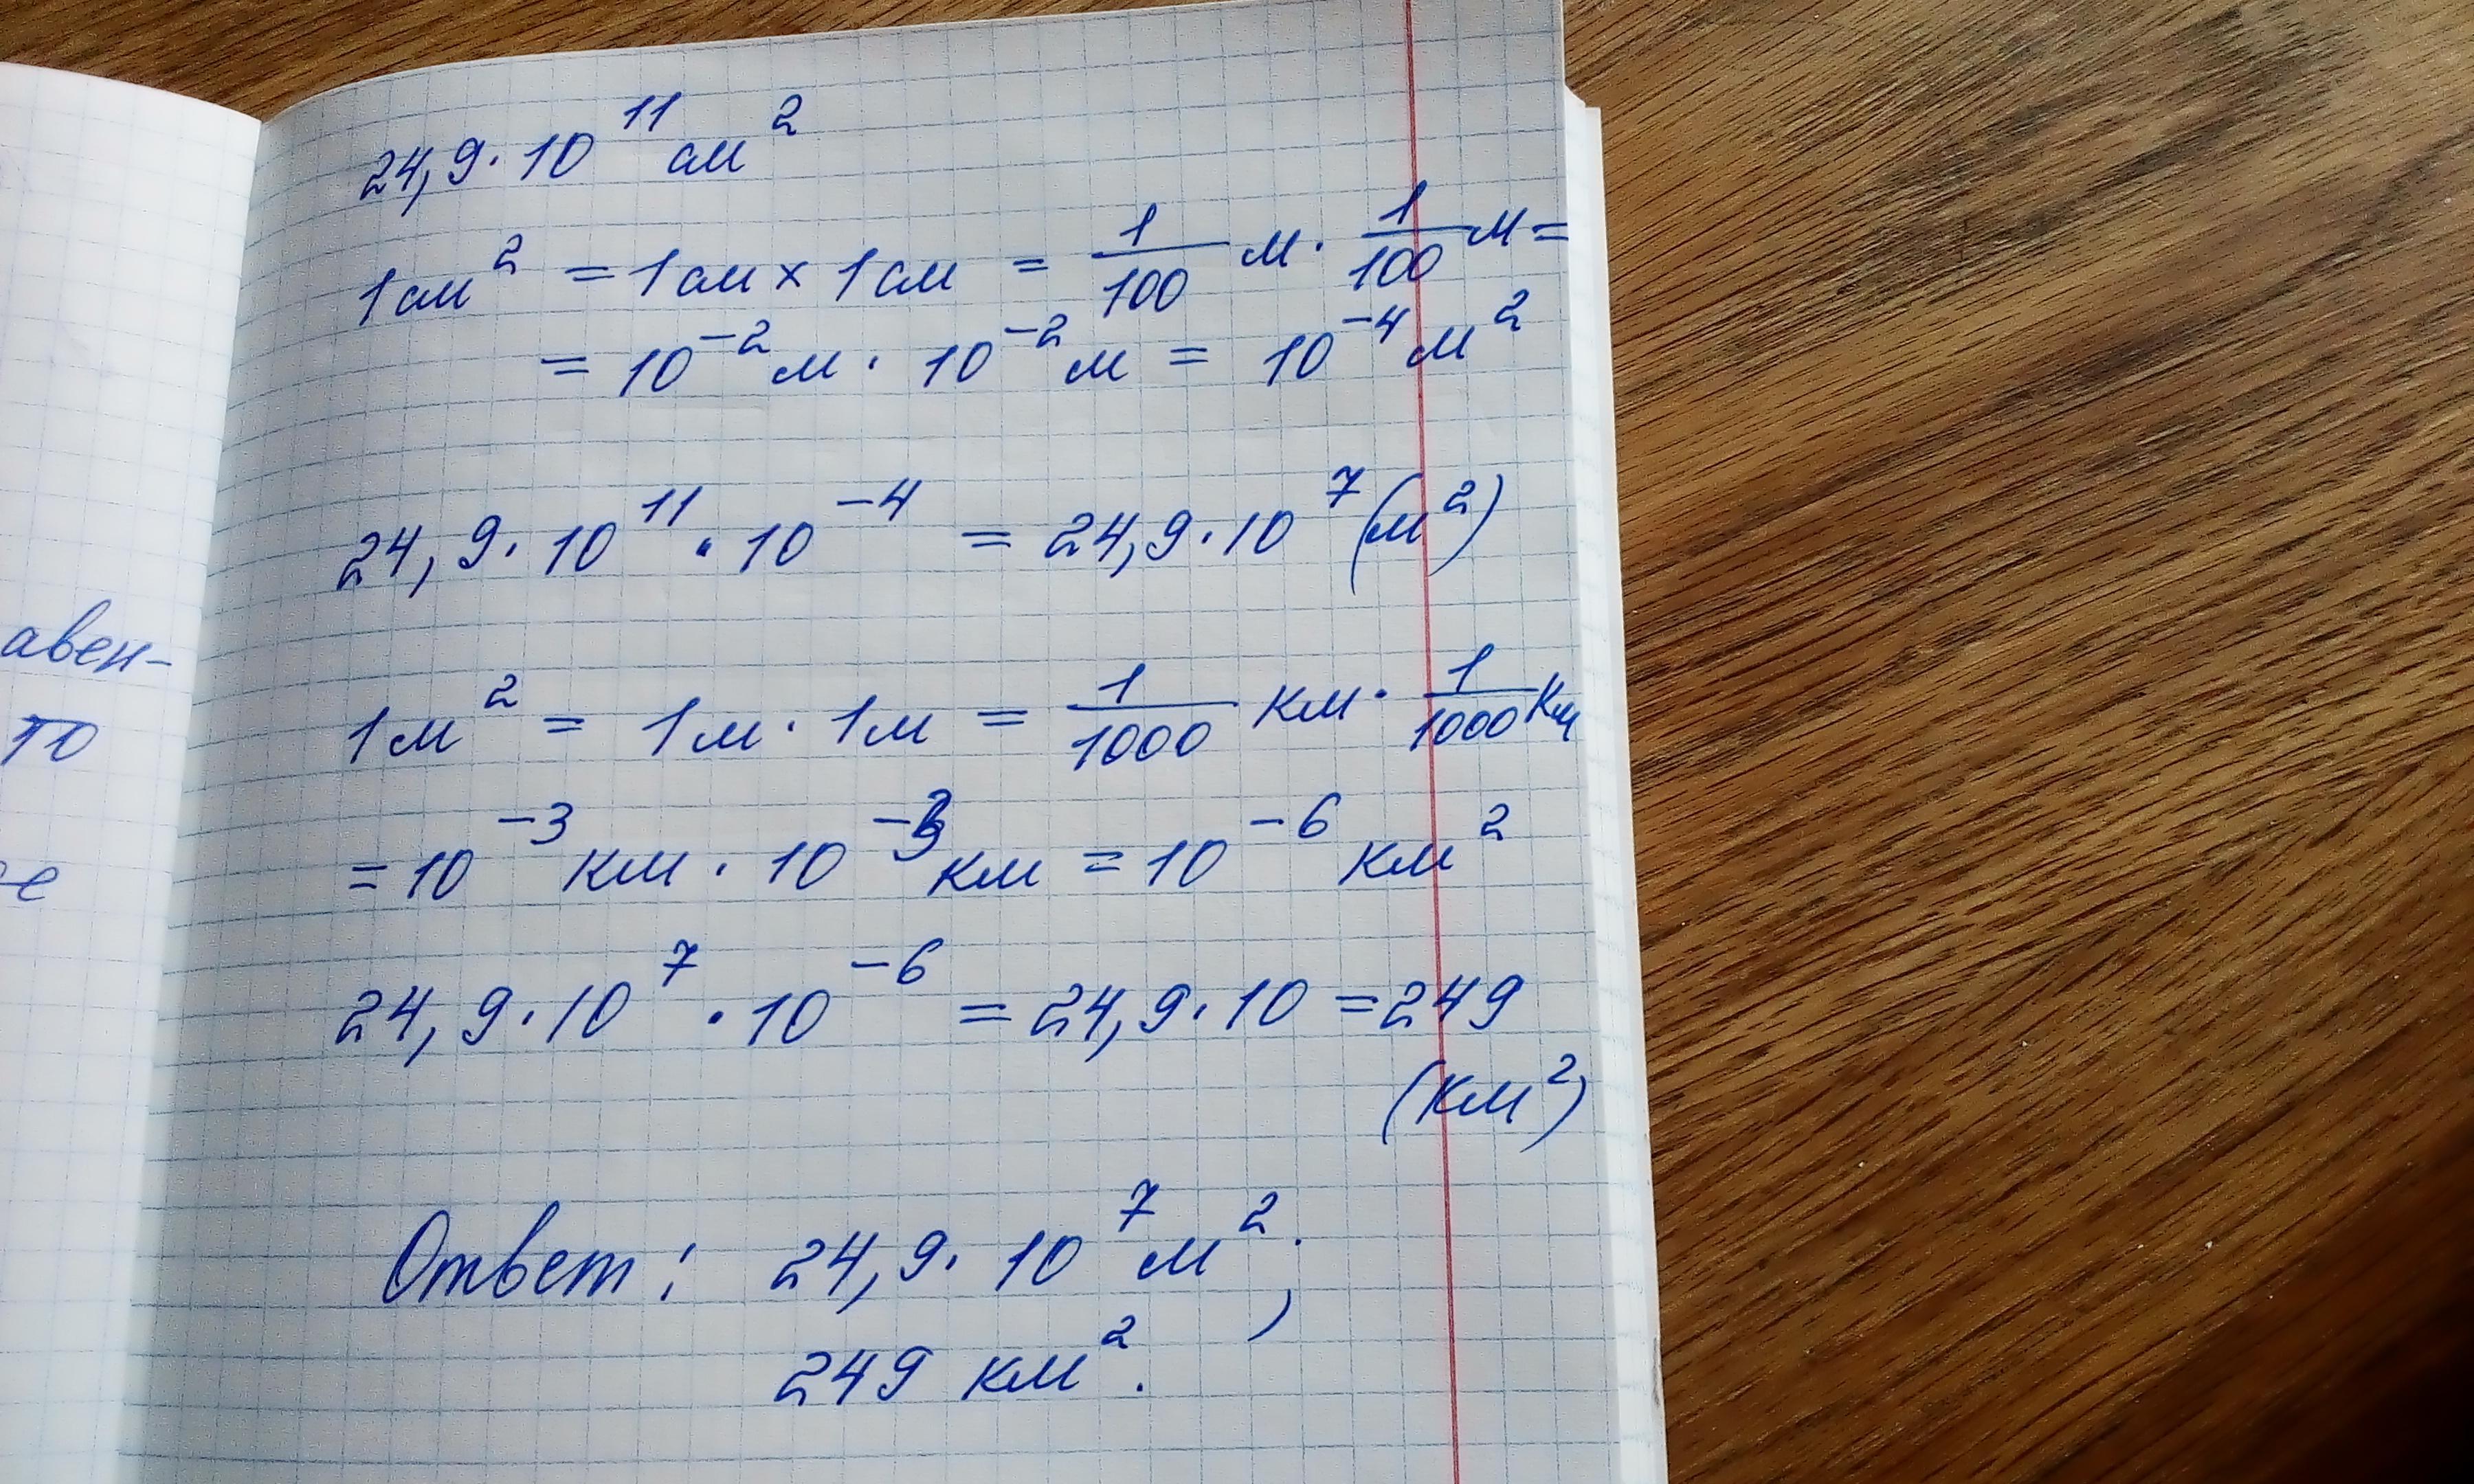 24,9·10¹¹ см²
1 см² = 1 см × 1 см = 1/100 м · 1/100 м =
= 10⁻² м · 10⁻² м = 10⁻⁴ м²
24,9·10¹¹ · 10⁻⁴ = 24,9·10⁷ (м²)
1 м² = 1 м · 1 м = 1/1000 км · 1/1000 км
= 10⁻³ км · 10⁻³ км = 10⁻⁶ км²
24,9·10⁷ · 10⁻⁶ = 24,9·10 = 249
(км²)
Ответ: 24,9·10⁷ м²;
249 км².
авен-
то
е